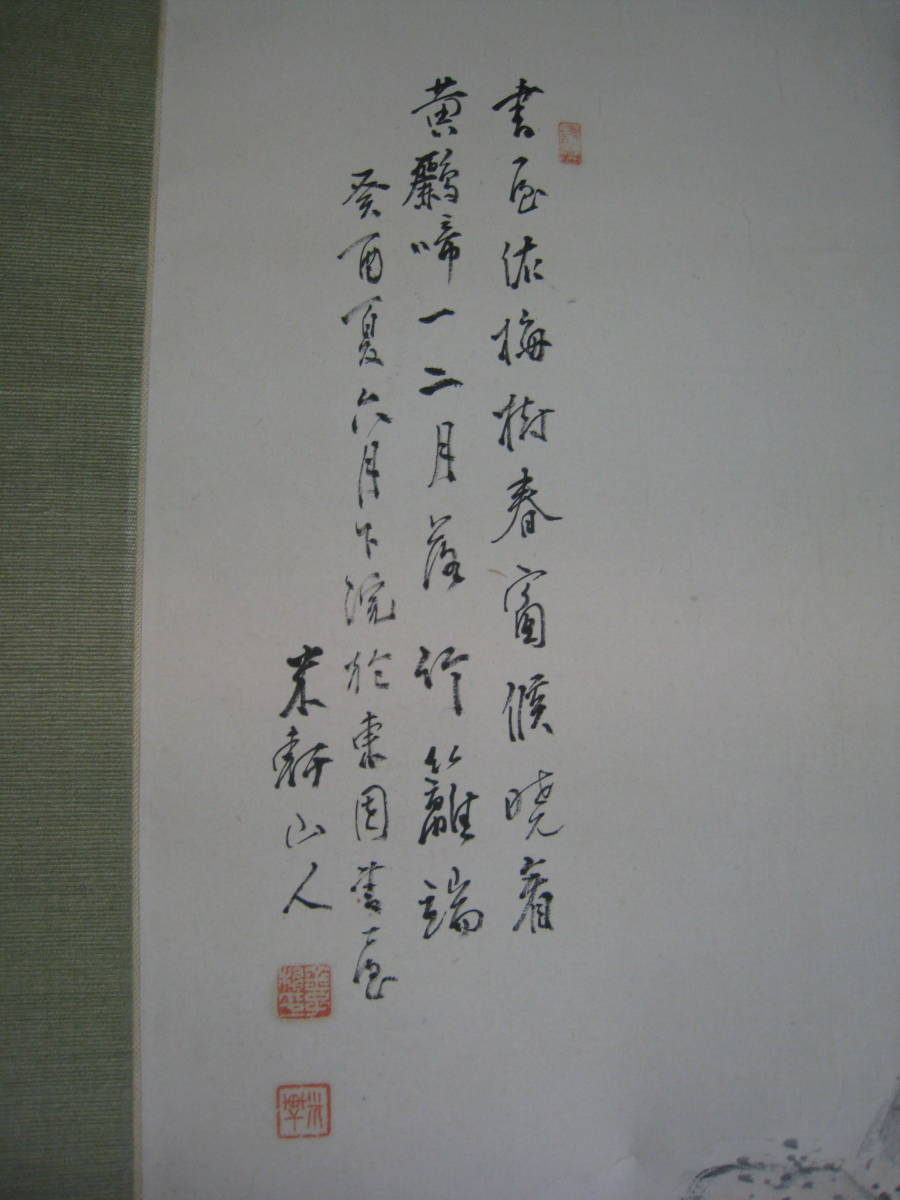 書屋依梅樹春窗候曉看
黄鸝啼一二月落竹籬端
癸酉夏六月下浣於東園書屋
米軒山人